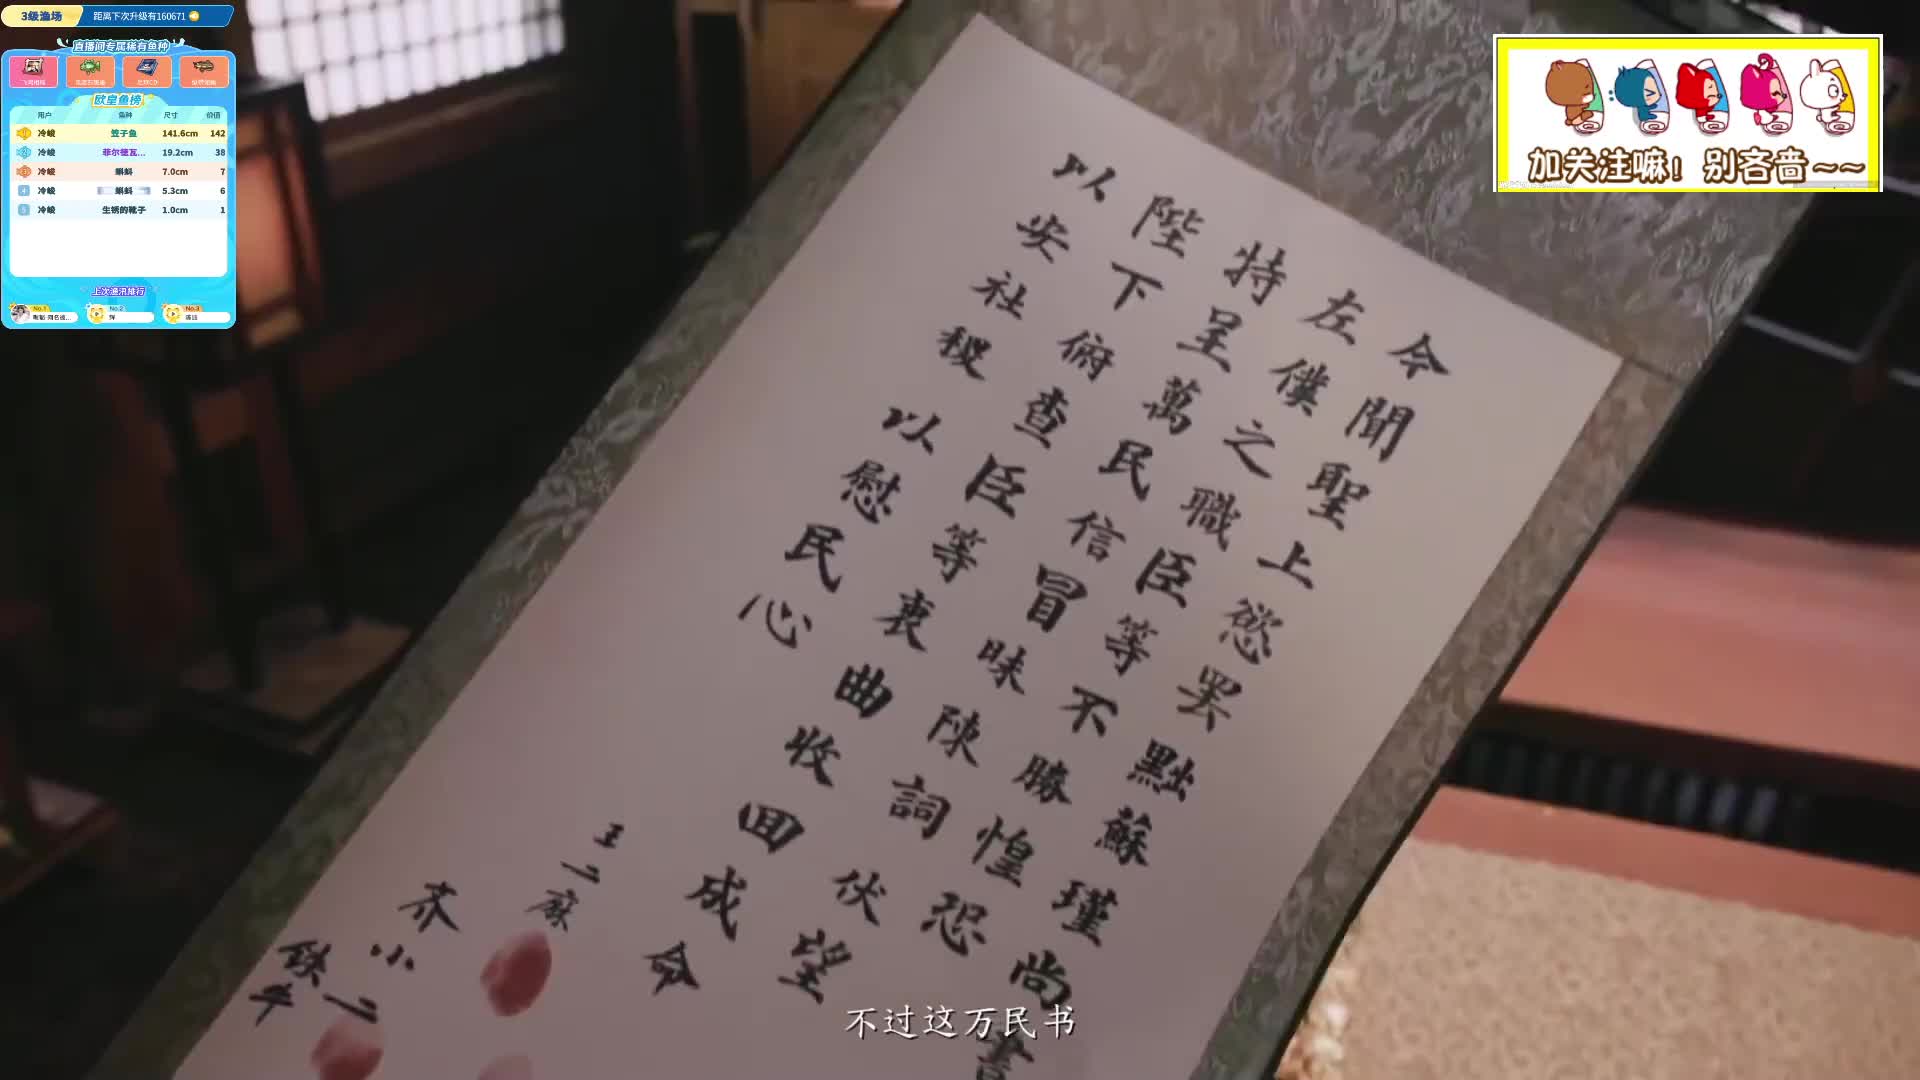 3级渔场
距离下次升级有160671
直播间专属稀有鱼种
欧皇鱼榜
用户 鱼种 尺寸 价值
冷峻 笠子鱼 141.6cm 142
冷峻 菲尔德瓦... 19.2cm 38
冷峻 蝌蚪 7.0cm 7
4 冷峻 蝌蚪 5.3cm 6
5 冷峻 生锈的靴子 1.0cm 1
上次渔汛排行
No.1
No.2
No.3
加关注嘛！别吝啬~~
今聞聖上慾罢黜蘇瑾尚書
左僕之職臣等不勝惶恐
特呈萬民信冒昧陳詞伏望
陛下俯查臣等衷曲收回成命
以安社稷以慰民心
王二麻
齐小二
铁牛
不过这万民书